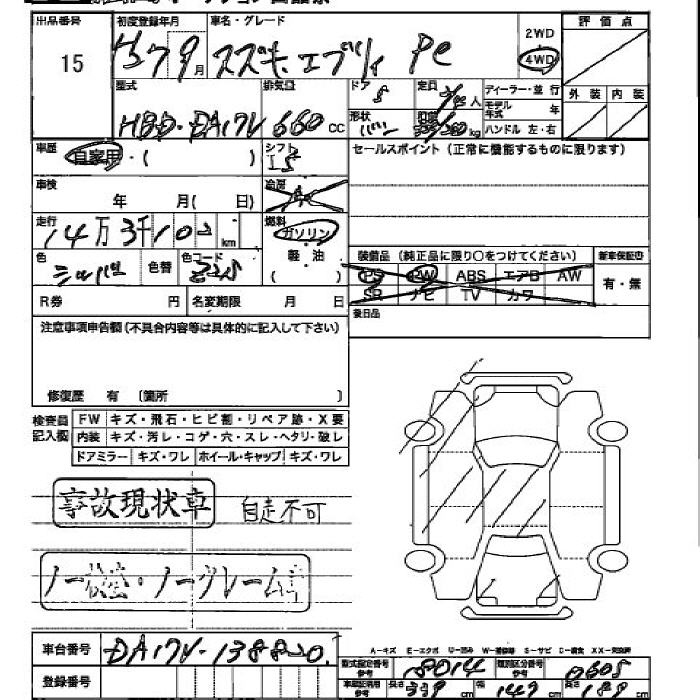 出品番号 初度登録年月 車名・グレード 2WD 評価点
15 H27 9月 スズキ エブリィ PC 4WD
型式 排気量 ドア 定員 ディーラー・並行 外装 内装
モデル年式 年
HBD-DA17V 660 CC 5 人 形状 バン kg ハンドル 左・右
車歴 自家用・( ) シフト セールスポイント (正常に機能するものに限ります)
車検 年 月( 日) 冷房
走行 14万3千102km 燃料 ガソリン
色 シルバー 色替 色コード Z2S 軽油 装備品 (純正品に限り○をつけてください) 新車保証書
( ) PS PW ABS エアB AW 有・無
R券 円 名変期限 月 日 SR ナビ TV カワ
後日品
注意事項申告欄(不具合内容等は具体的に記入して下さい)
修復歴 有 〔箇所 〕
検査員記入欄 FW キズ・飛石・ヒビ割・リペア跡・X要
内装 キズ・汚レ・コゲ・穴・スレ・ヘタリ・破レ
ドアミラー キズ・ワレ ホイール・キャップ キズ・ワレ
事故現状車 自走不可
ノー検査・ノークレーム車
A-キズ E-エクボ U-凹み W-補修跡 S-サビ C-腐食 XX-交換済
車台番号 DA17V-138820 型式指定番号 18014 類別区分番号 0605
登録番号 長さ 339cm 幅 147cm 高さ 189cm